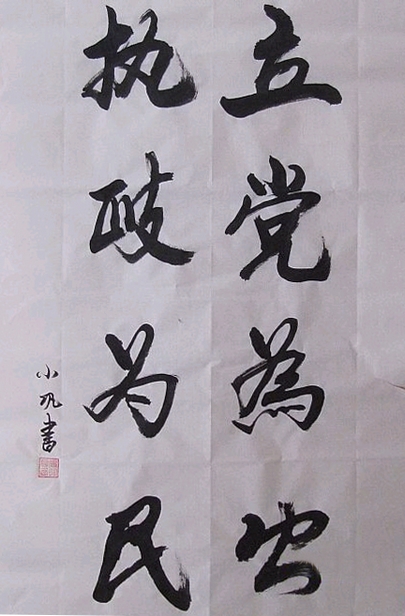 立党為公
执政为民
小 書